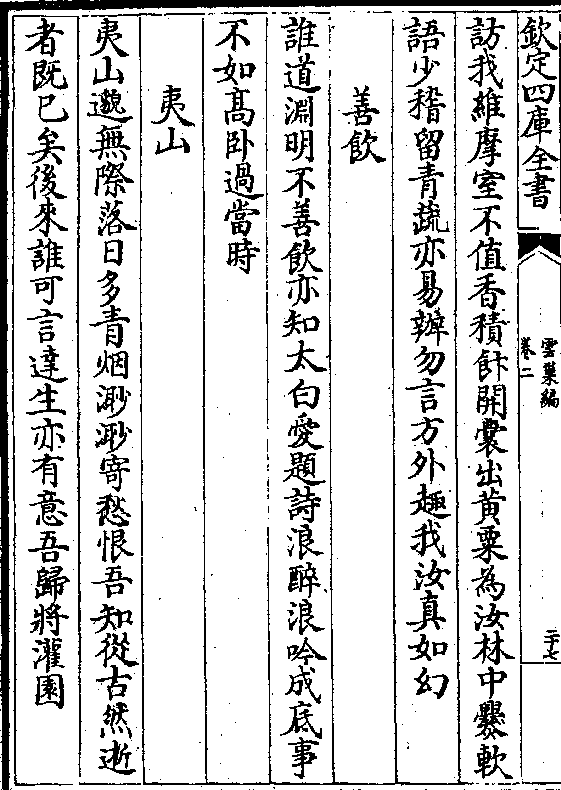 欽定四庫全書
雲巢編
卷二
二十七
訪我維摩室不值香積飰開囊出黄粟為汝林中爨軟
語少稽留青蔬亦易辦勿言方外趣我汝真如幻
善飲
誰道淵明不善飲亦知太白愛題詩浪醉浪吟成底事
不如髙卧過當時
夷山
夷山邈無際落日多青烟渺渺寄愁恨吾知從古然逝
者既已矣後來誰可言達生亦有意吾歸將灌園